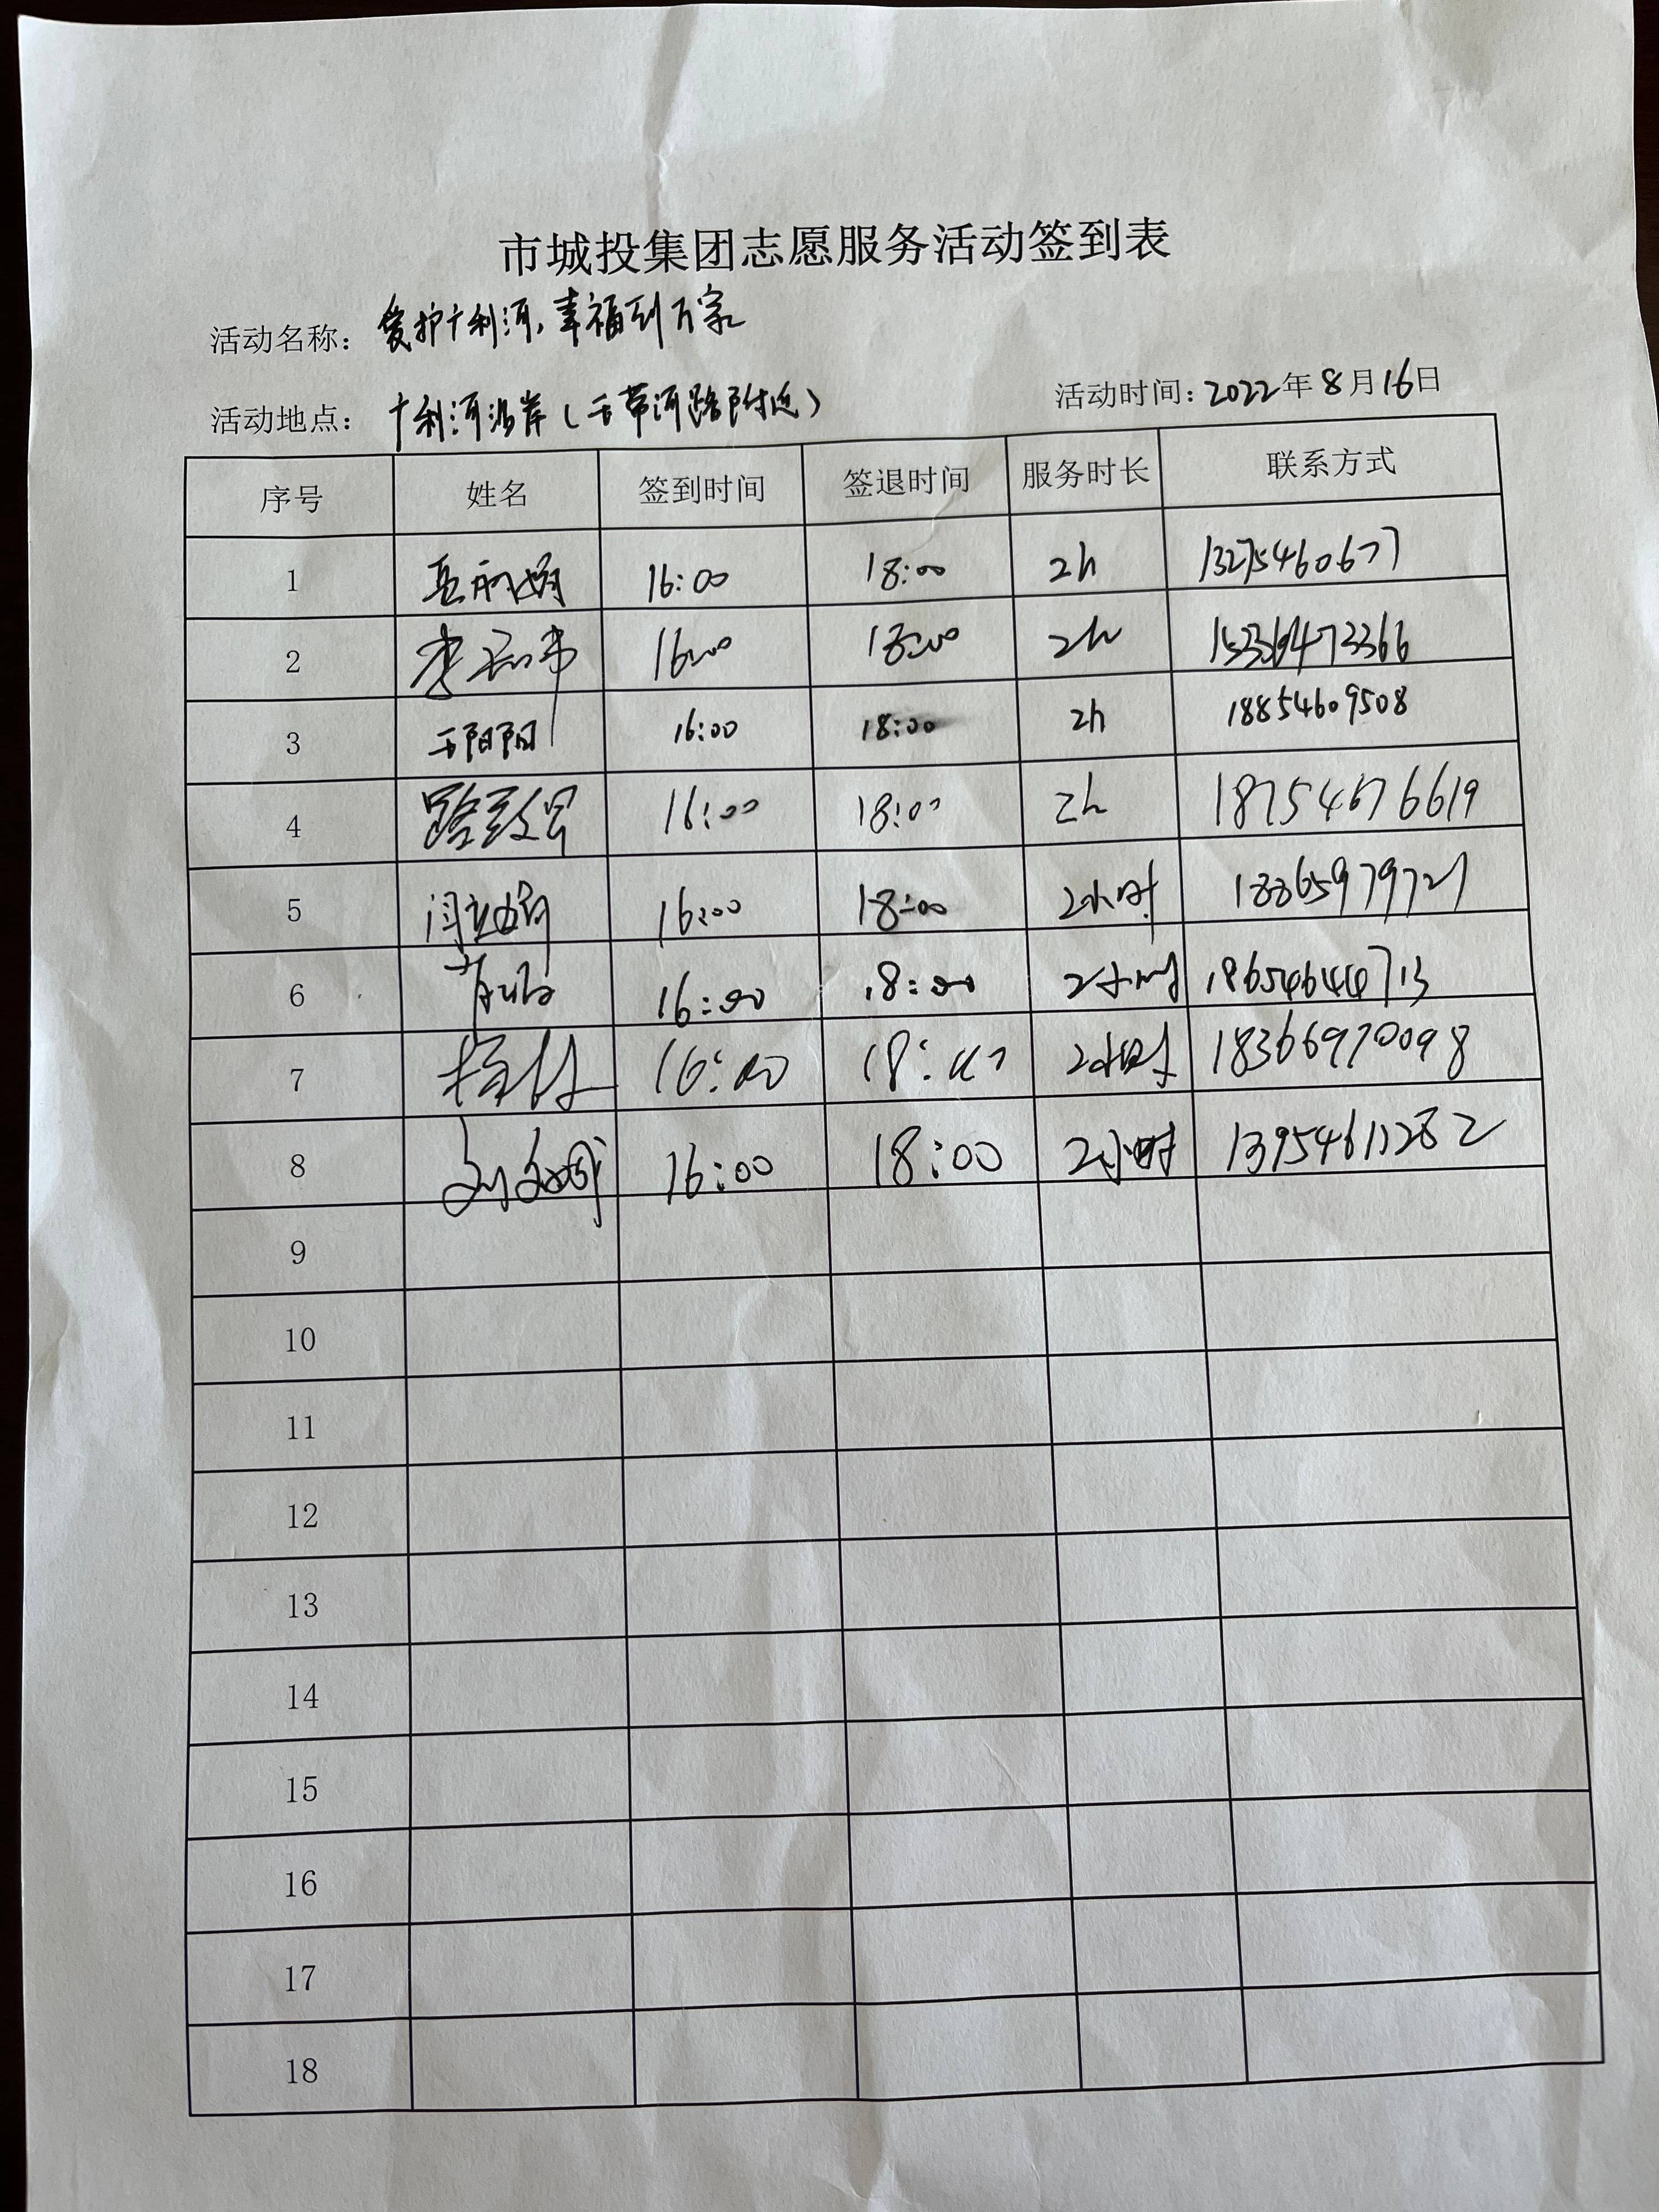 市城投集团志愿服务活动签到表
活动名称：爱护十利河，幸福到万家
活动地点：十利河沿岸（玉带河路附近）
活动时间：2022年8月16日
序号 姓名 签到时间 签退时间 服务时长 联系方式
1 16:00 18:00 2h 13275460677
2 16:00 18:00 2h
3 王阳阳 16:00 18:00 2h 18854609508
4 16:00 18:00 2h 18754676619
5 闫立娟 16:00 18:00 2小时
6 16:00 18:00 2小时 18654644713
7 16:00 18:00 2小时 18366970098
8 16:00 18:00 2小时 13954611282
9
10
11
12
13
14
15
16
17
18